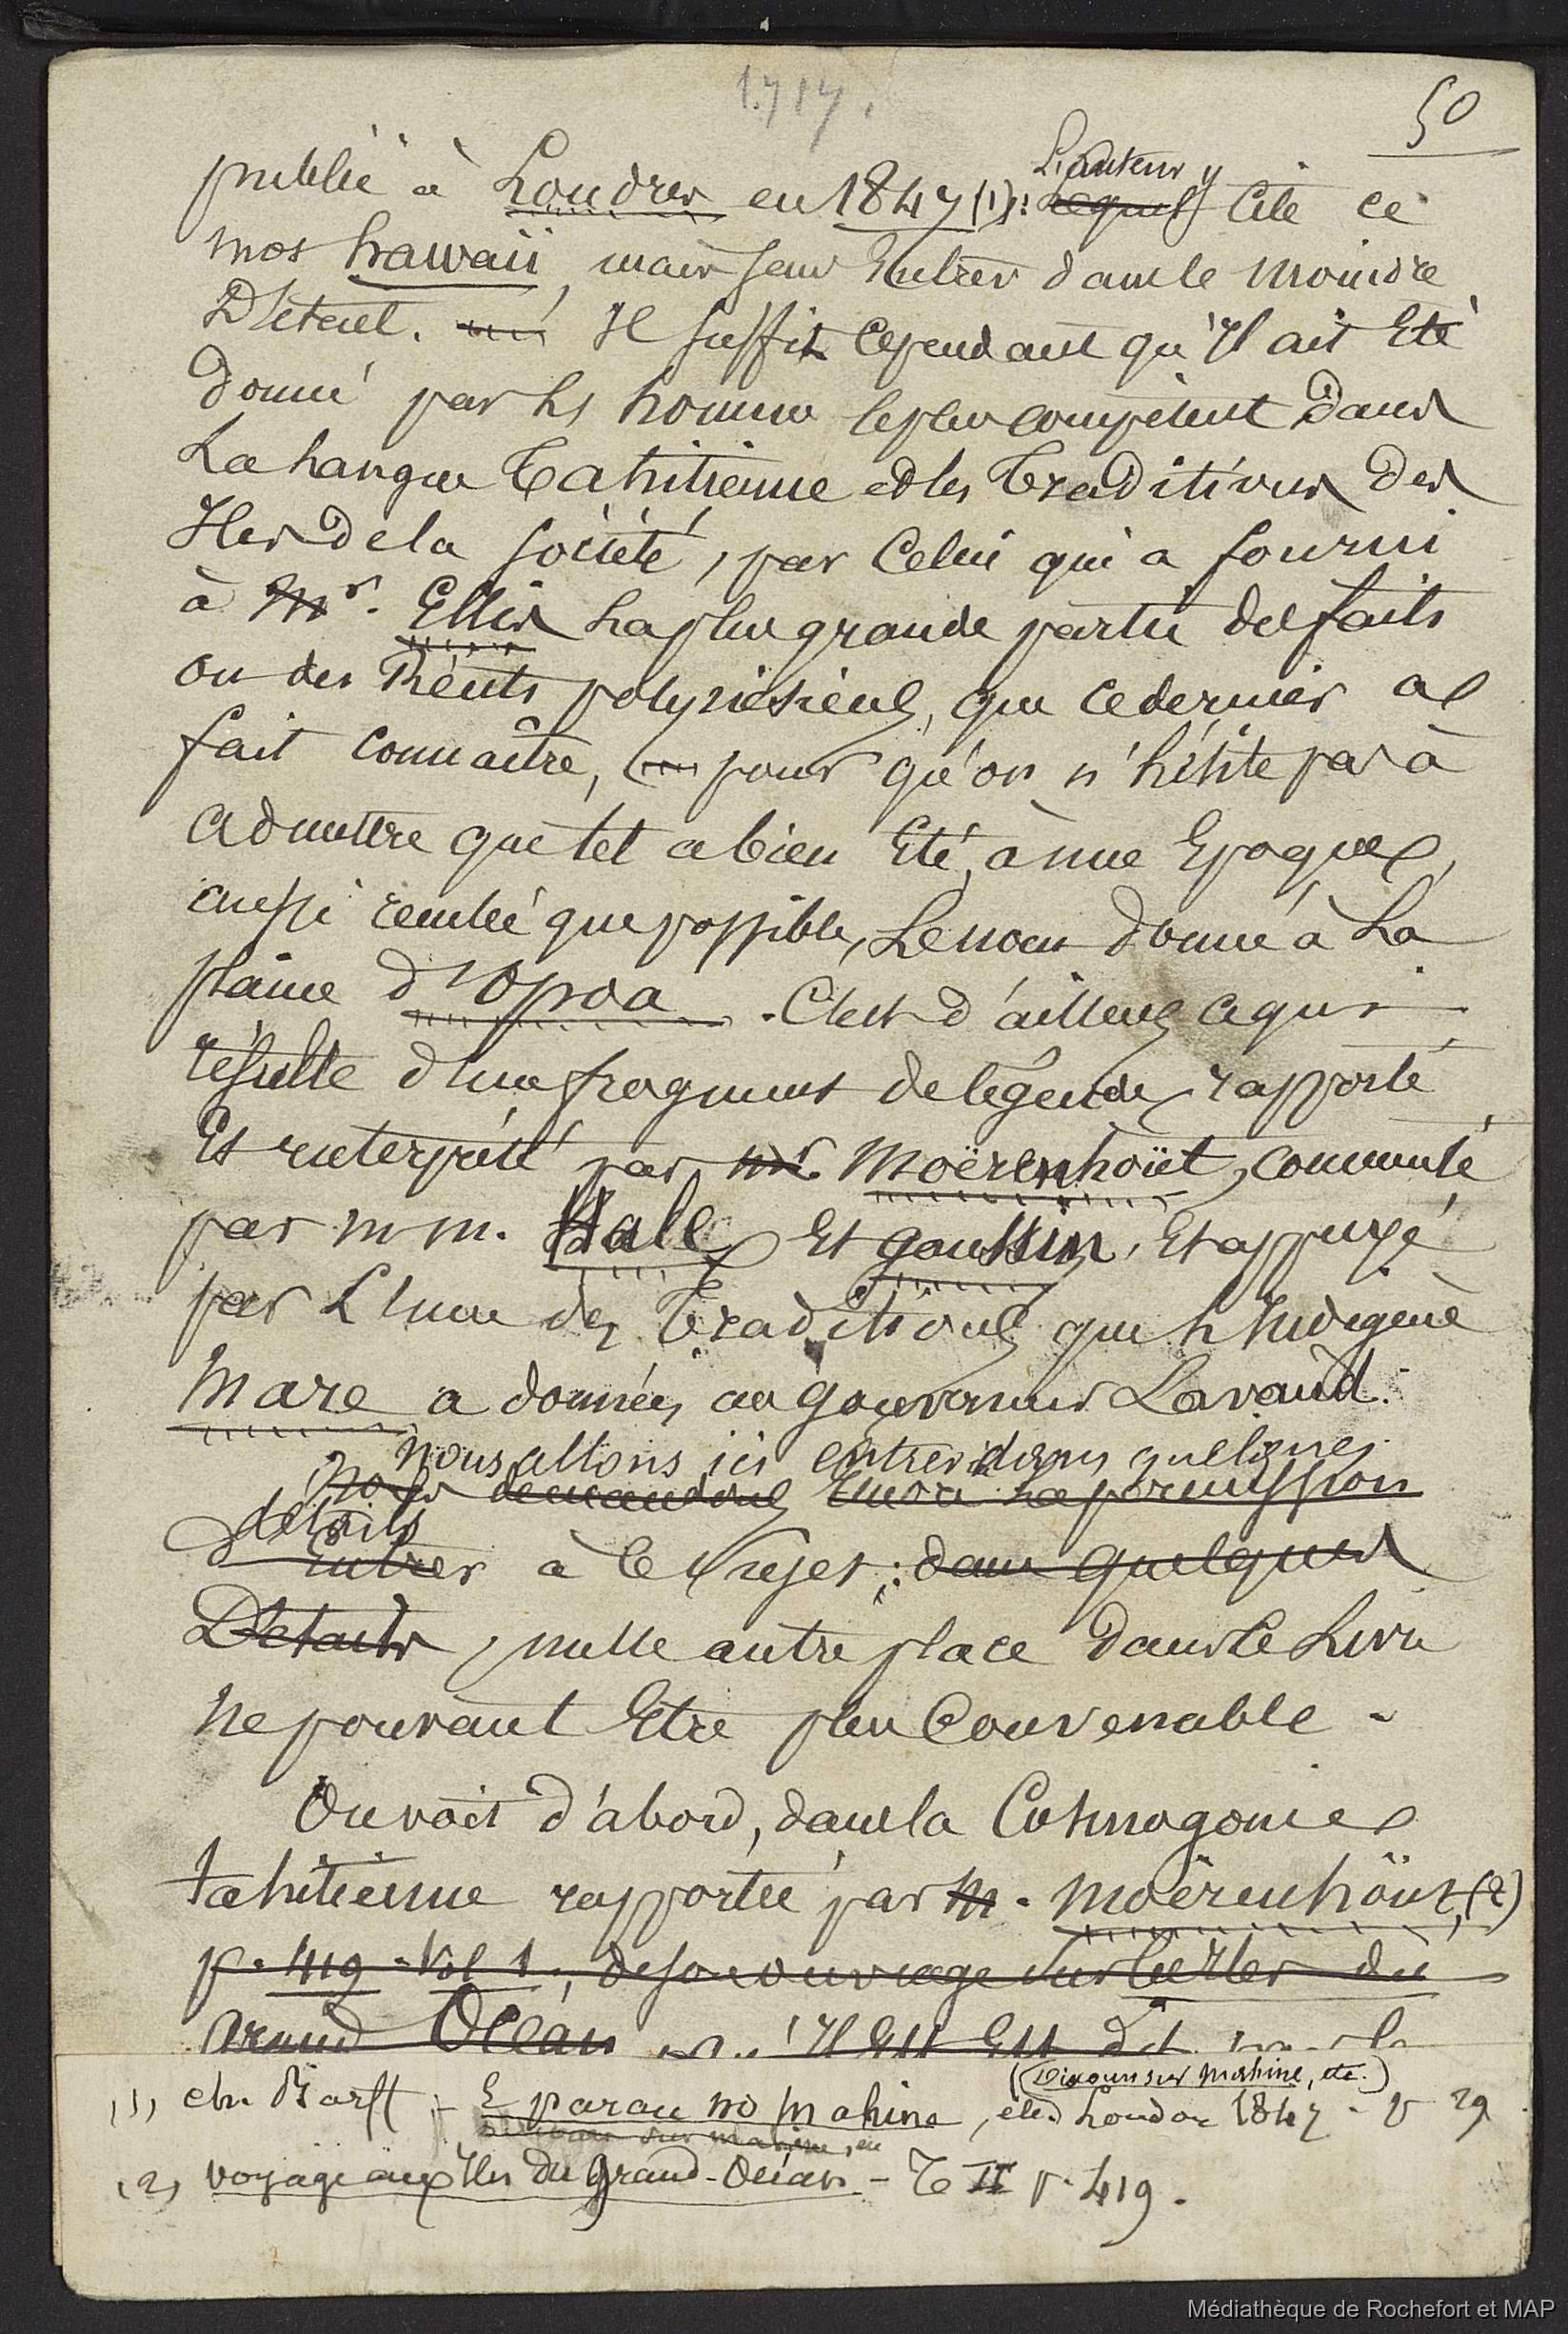 50
publié à Londres en 1847 (1): L'auteur y lequel Cite ce
mot hawaii, mais sans Entrer dans le moindre
Détail. Il suffit Cependant qu'Il ait Eté
donné par l'homme le plus compétent dans
La Langue Tahitienne et les Traditions des
Iles de la Société, par Celui qui a fourni
à Mr. Ellis La plus grande partie des faits
ou des Récits polynésiens, que ce dernier a
fait connaître, pour qu'on n'hésite pas à
admettre que tel a bien Eté, à une Epoque,
aussi reculée que possible, Le nom donné à La
plaine d'Opoa. C'est d'ailleurs ce qui
résulte d'un fragment de légende rapporté
Et interprété par Mr. Moërenhoüt, commenté
par m m. Hale Et gaussin, Et appuyé
par L'une des Traditions que l'Indigène
Mare a données au gouverneur Lavaud.
Nous allons ici entrer dans quelques
Nous demandons Encore La permission
détails
d'Entrer à ce Sujet; dans quelques
Détails, nulle autre place dans ce Livre
Ne pouvant Etre plus Convenable.
On voit d'abord, dans la Cosmogonie
tahitienne rapportée par M. Moërenhoüt, (2)
p. 419 - Vol 1., de son ouvrage sur les Iles du
Grand Océan qu'Il Est dit
(Discours sur Mahine, etc.)
(1) Ch. Barff - E parau no Mahine, etc. London 1847 - p 29
Discours sur Mahine, etc
(2) Voyage aux Iles du Grand-Océan - T II p. 419.
Médiathèque de Rochefort et MAP